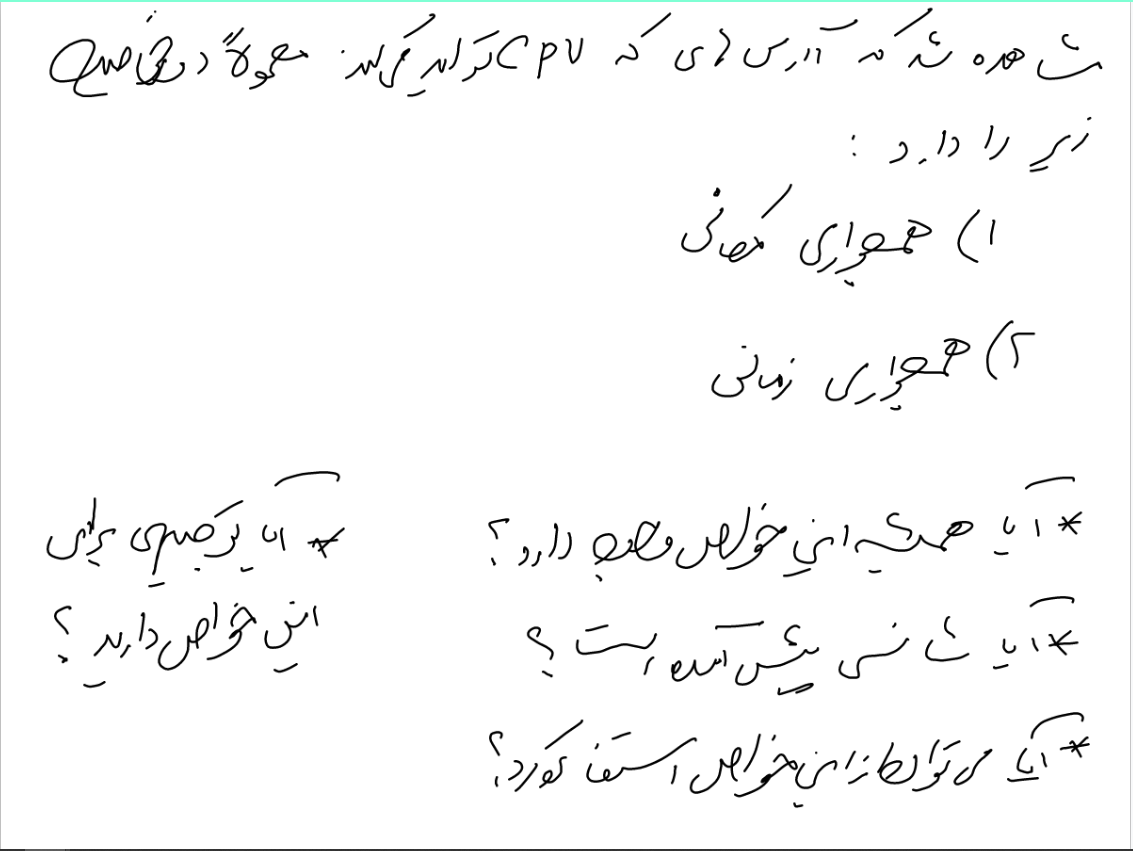 مشاهده شد که آدرس های که CPU تولید می کند معمولاً دو خاصیت
زیر را دارد :
۱) همجواری مکانی
۲) همجواری زمانی
* آیا همیشه این خواص وجود دارد؟
* آیا شانسی پیش آمده است؟
* آیا می توان از این خواص استفاده کرد؟
* آیا توجیهی برای
این خواص دارید؟